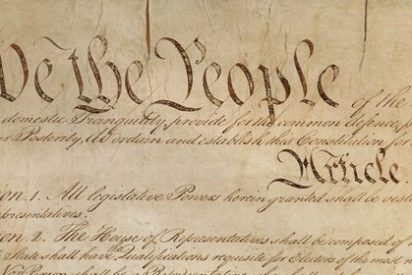 We the People of the
domestic Tranquility, provide for the common defence,
Posterity, do ordain and establish this Constitution for
Article.
1. All legislative Powers herein granted shall be vested
Representatives.
2. The House of Representatives shall be composed of
State shall have Qualifications requisite for Electors of the most
No Person shall be a Representative